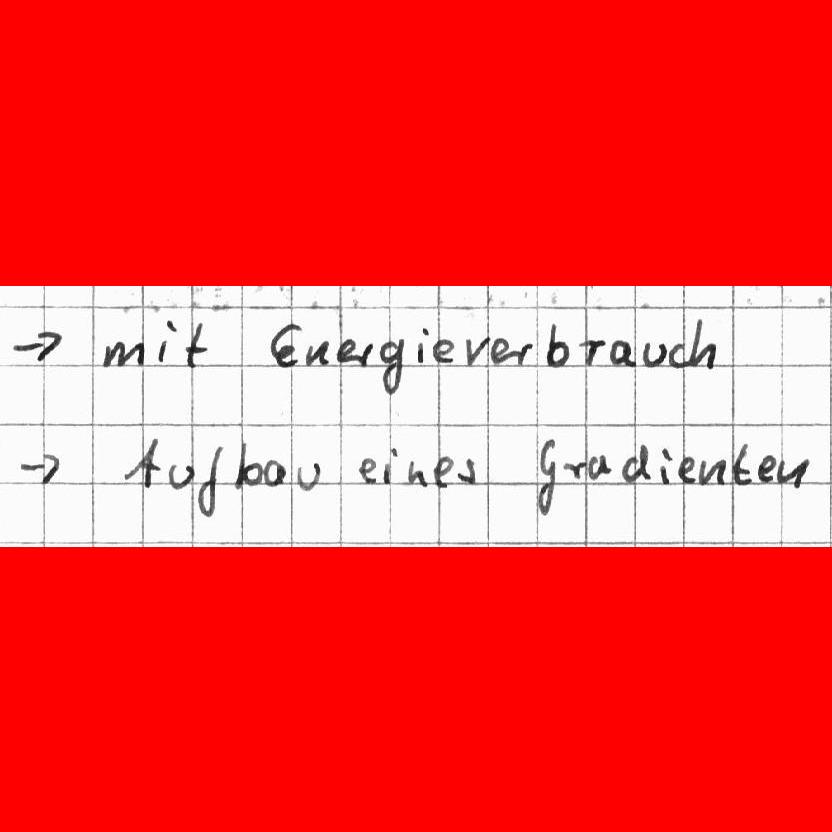 → mit Energieverbrauch
→ Aufbau eines Gradienten